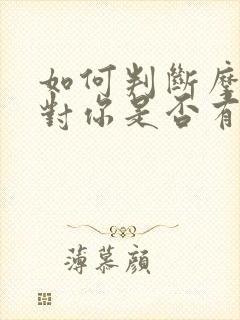 如何判斷塵
對你是否有
薄慕顏